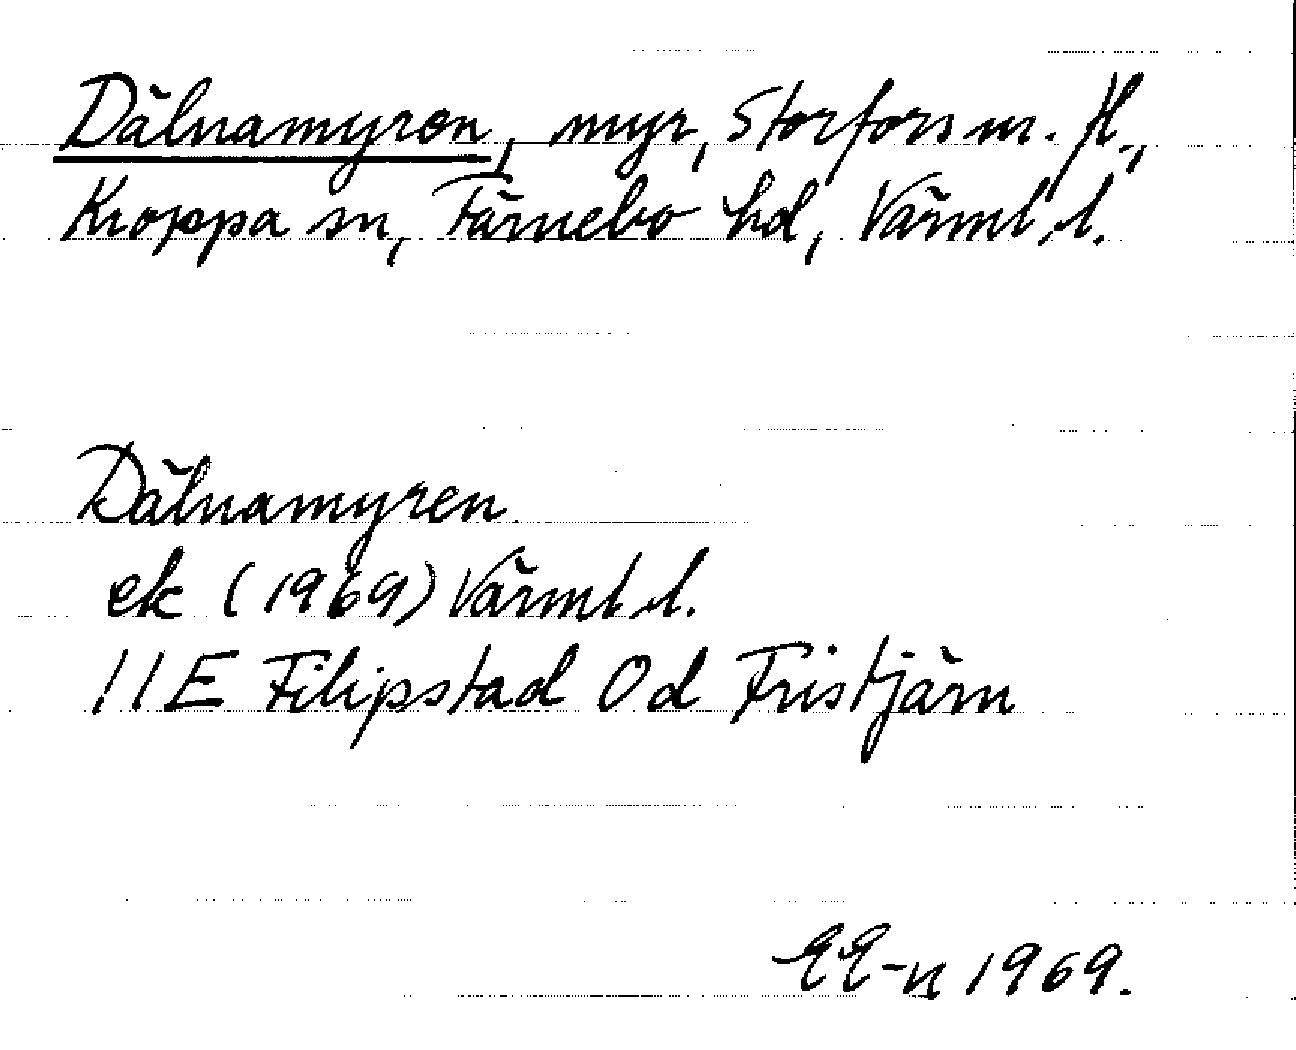 Dälnamyren, myr, Storfors m. fl.,
Kroppa sn, Färnebo hd, Värml. l.
Dälnamyren
ek (1969) Värml. l.
11E Filipstad 0d Fristjärn
EE-n 1969.